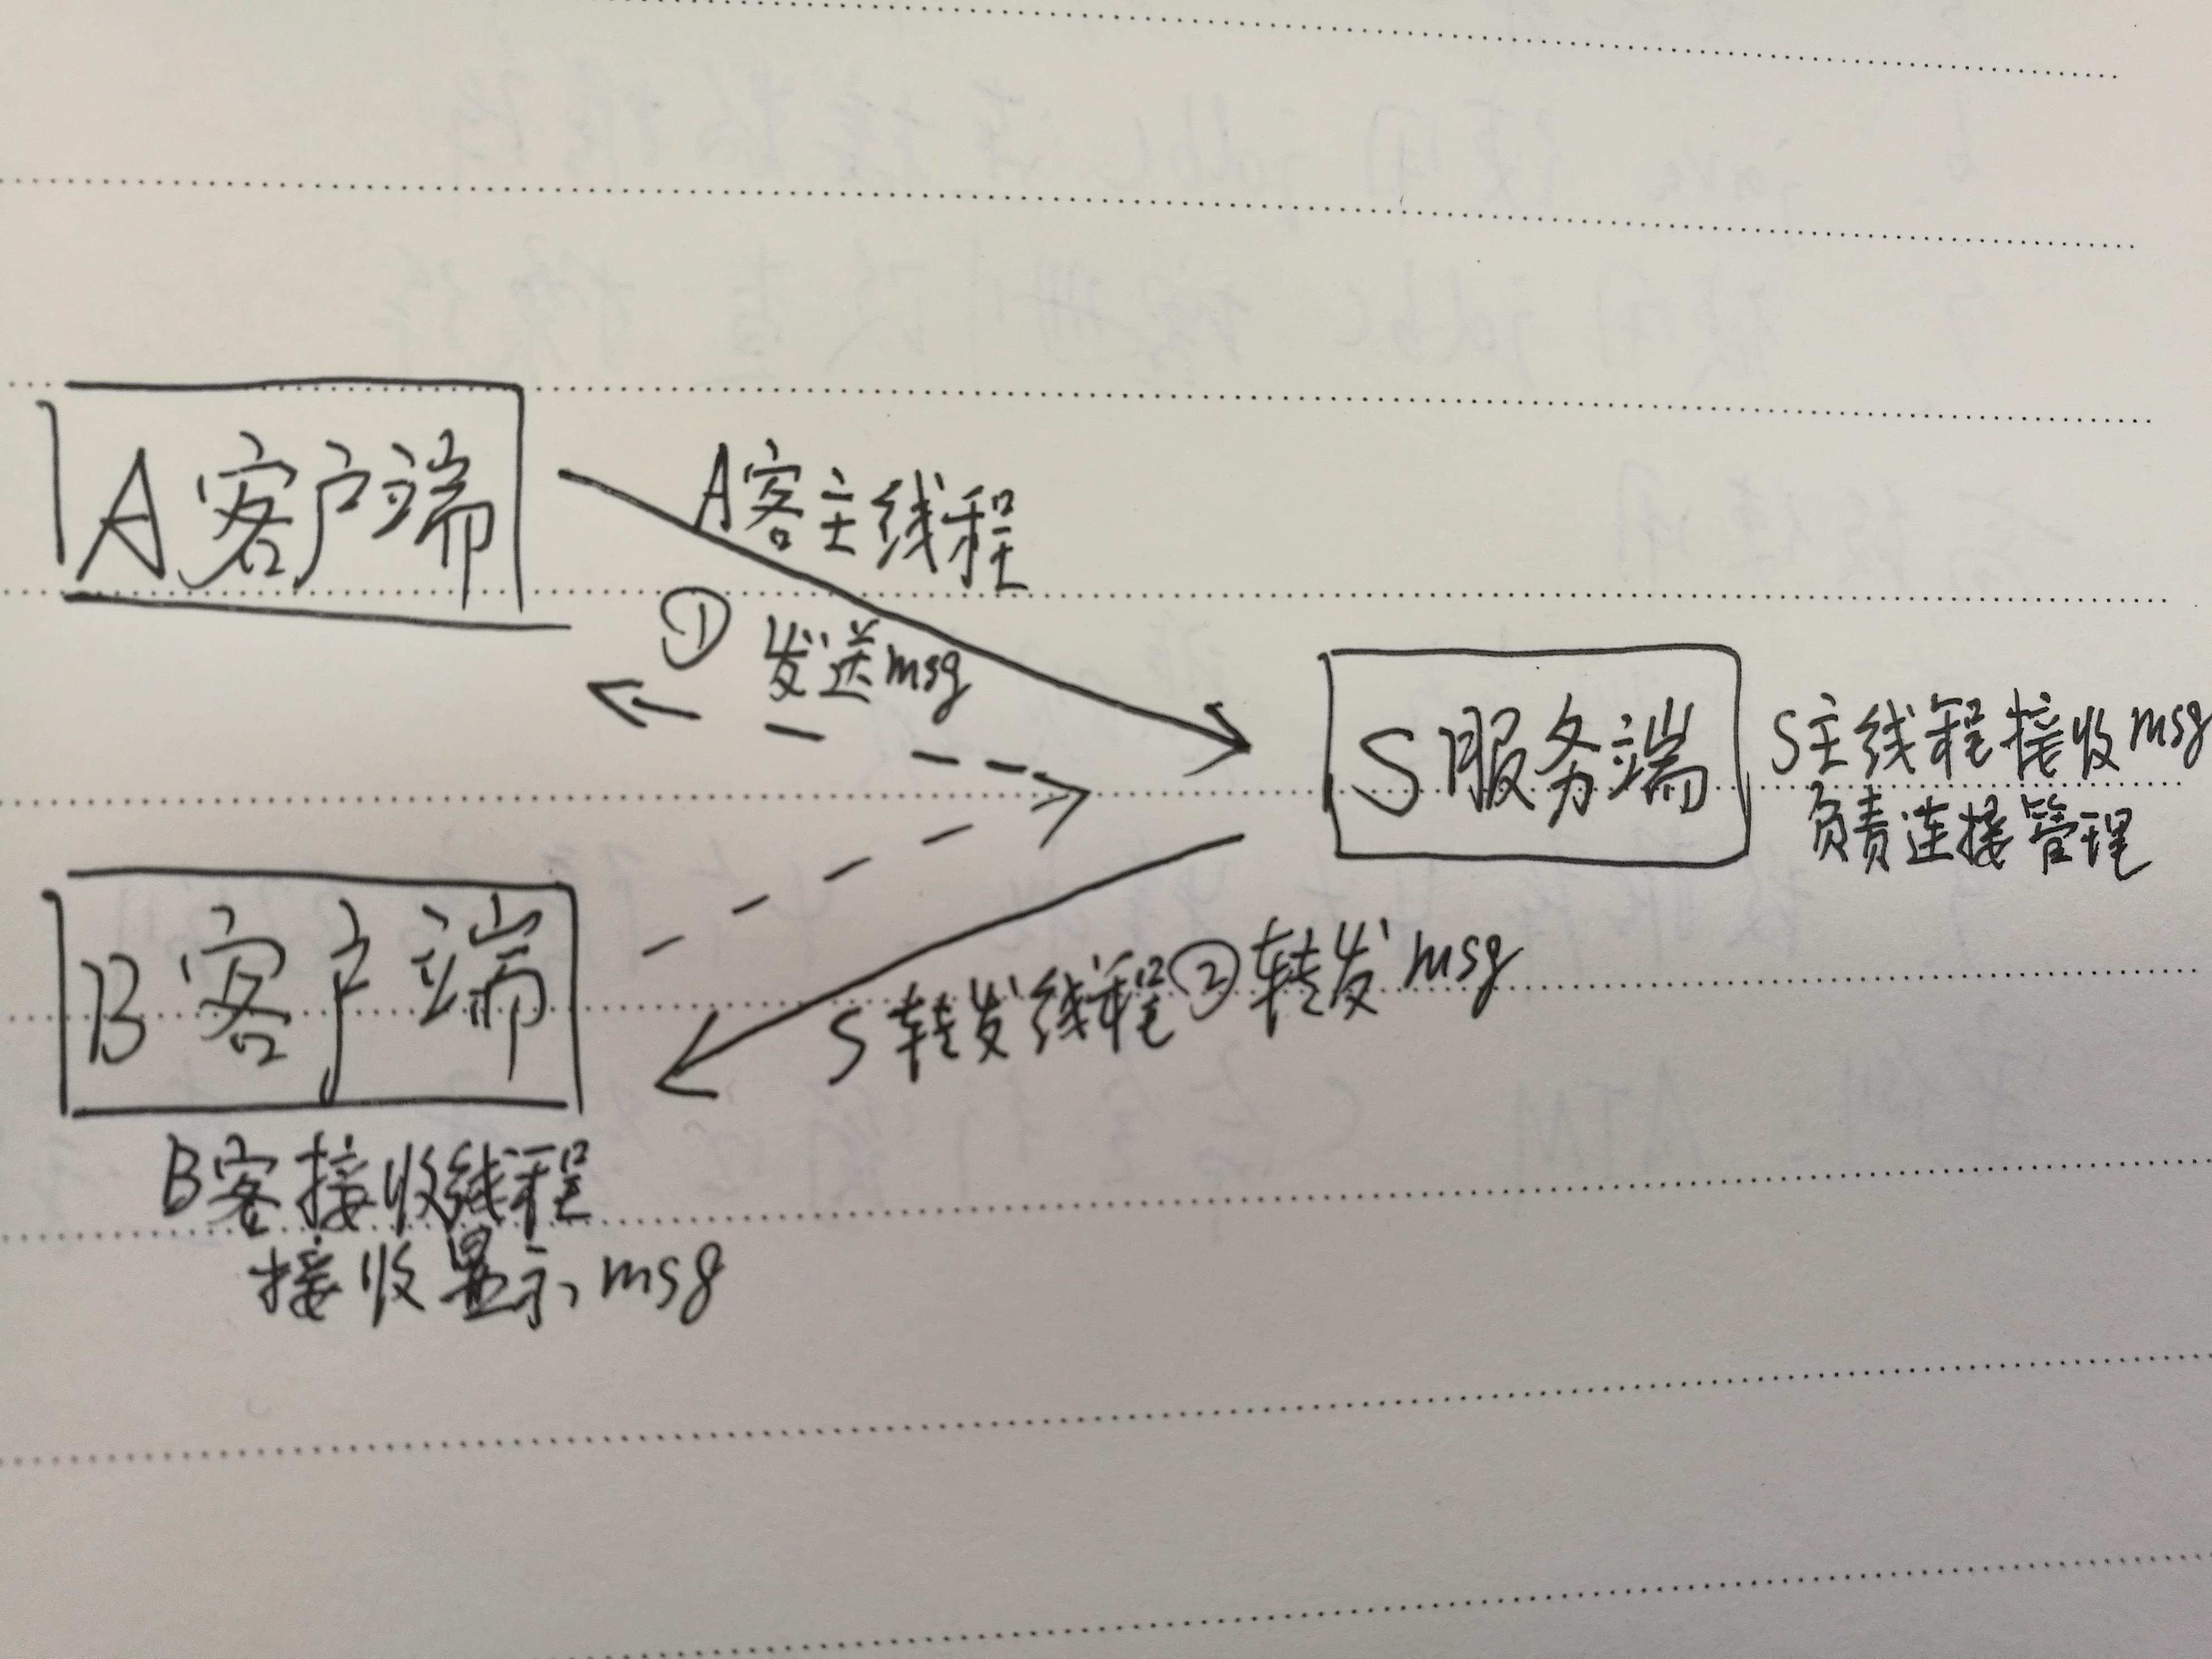 A客户端
A客主线程
① 发送msg
S服务端
S主线程接收msg
负责连接管理
B客户端
S转发线程②转发msg
B客接收线程
接收显示msg